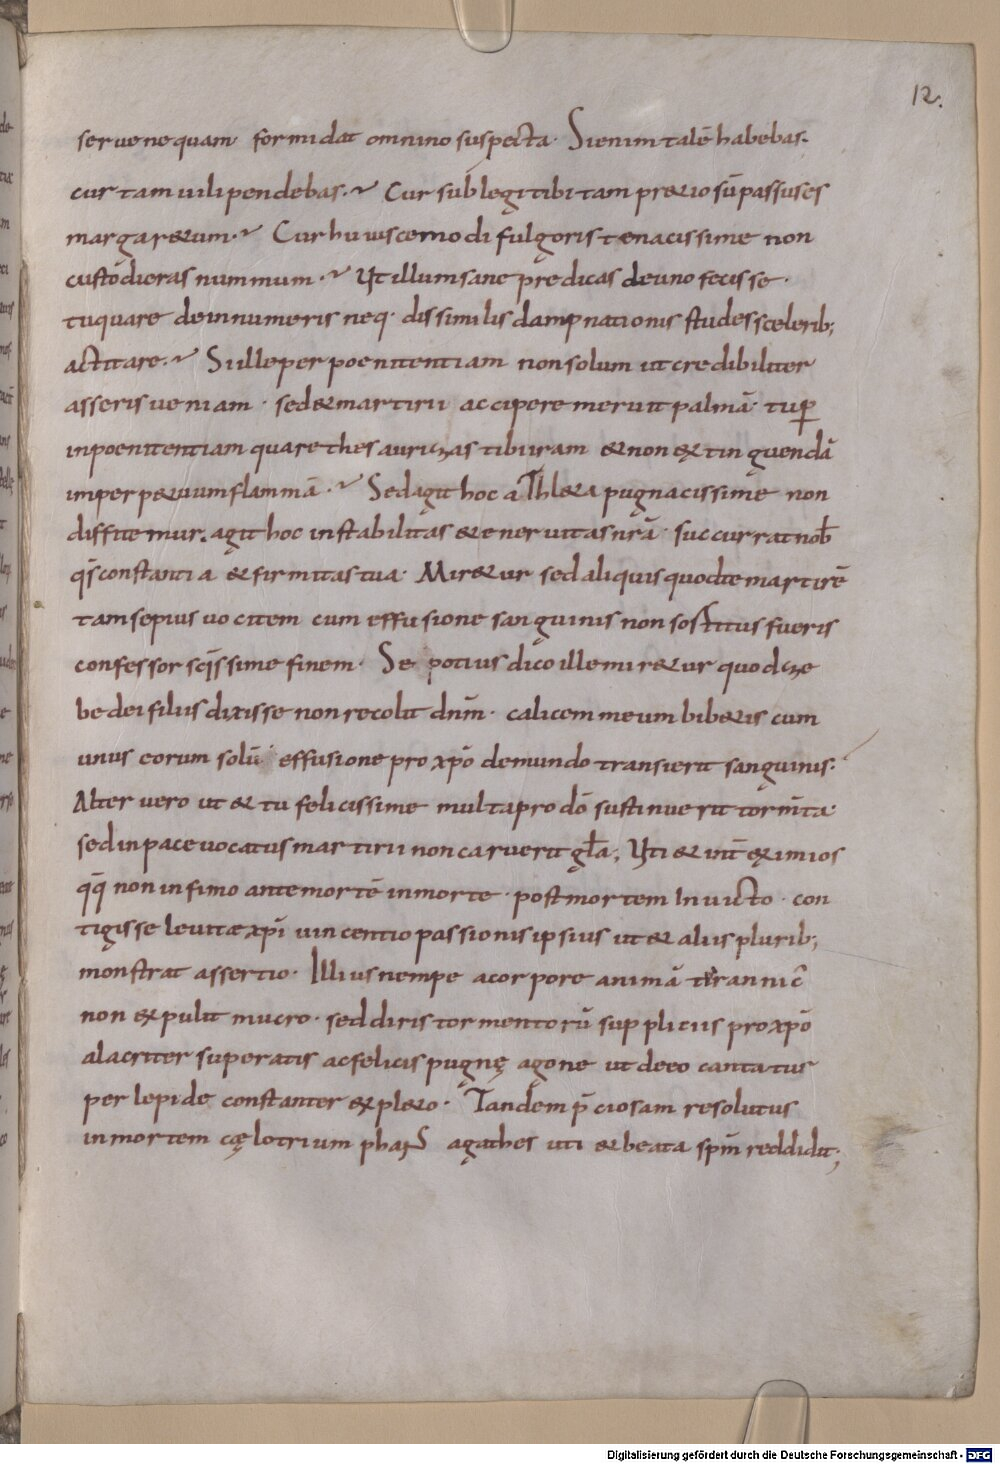 12.
serue nequam formidat omnino suspecta. Si enim talē habebas.
cur tam uilipendebas. Cur sub legi tibi tam pretio sūpassuses
margaretum. Cur huiuscemodi fulgoris tenacissime non
custodieras nummum. Ut illum sane predicas de uno fecisse.
tu quare de innumeris neq. dissimilis dampnationis studes sceleribꝫ
actitare. Si ille per poenitentiam non solum ut credibiliter
asseris ueniam. sed & martirii accipere meruit palmā. tu ꝑ
inpoenitentiam quare thesaurizas tibi iram & non extinguendā
imperpetuum flammā. Sed agit hoc athleta pugnacissime non
diffitemur. agit hoc instabilitas & eneruitas nrā. succurrat nob̄
qs̄ constantia & firmitas tua. Miretur sed aliquis quod te martirē
tam sepius uocitem cum effusione sanguinis non sortitus fueris
confessor scīssime finem. Se potius dico ille miretur quod ze
bedei filiis dixisse non recolit dnm̄. calicem meum bibetis cum
unus eorum solū effusione pro xpō de mundo transierit sanguinis.
Alter uero ut & tu felicissime multa pro dō sustinuerit torm̄ta
sed in pace uocatus martirii non caruerit gła; Uti & int̄ eximios
qq̄ non infimo ante mortē in morte. post mortem inuicto. con
tigisse leuitæ xpī uincentio passionis ipsius ut & aliis pluribꝫ
monstrat assertio. Illius nempe a corpore animā tirannic̄
non expulit mucro. sed diris tormentorū suppliciis pro xpō
alacriter superatis ac felicis pugnę agone ut de eo cantatur
perlepide constanter expleto. Tandem p̄ciosam resolutus
in mortem cęlo triumphans agathes uti & beata spm̄ reddidit;
Digitalisierung gefördert durch die Deutsche Forschungsgemeinschaft - DFG